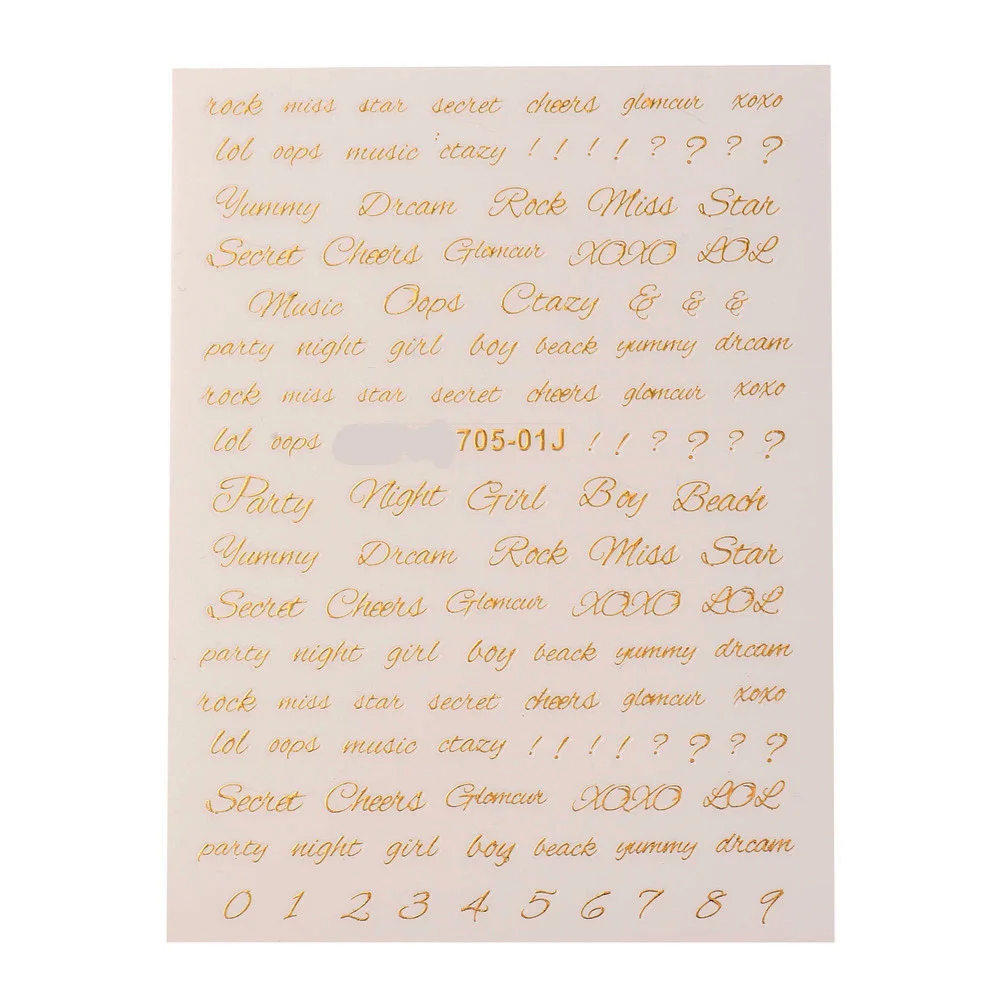 rock miss star secret cheers glomcur xoxo
lol oops music ctazy ! ! ! ! ? ? ? ?
Yummy Drcam Rock Miss Star
Secret Cheers Glomcur XOXO LOL
Music Oops Ctazy & & &
party night girl boy beack yummy drcam
rock miss star secret cheers glomcur xoxo
lol oops 705-01J ! ! ? ? ? ?
Party Night Girl Boy Beach
Yummy Drcam Rock Miss Star
Secret Cheers Glomcur XOXO LOL
party night girl boy beack yummy drcam
rock miss star secret cheers glomcur xoxo
lol oops music ctazy ! ! ! ! ? ? ? ?
Secret Cheers Glomcur XOXO LOL
party night girl boy beack yummy drcam
0 1 2 3 4 5 6 7 8 9